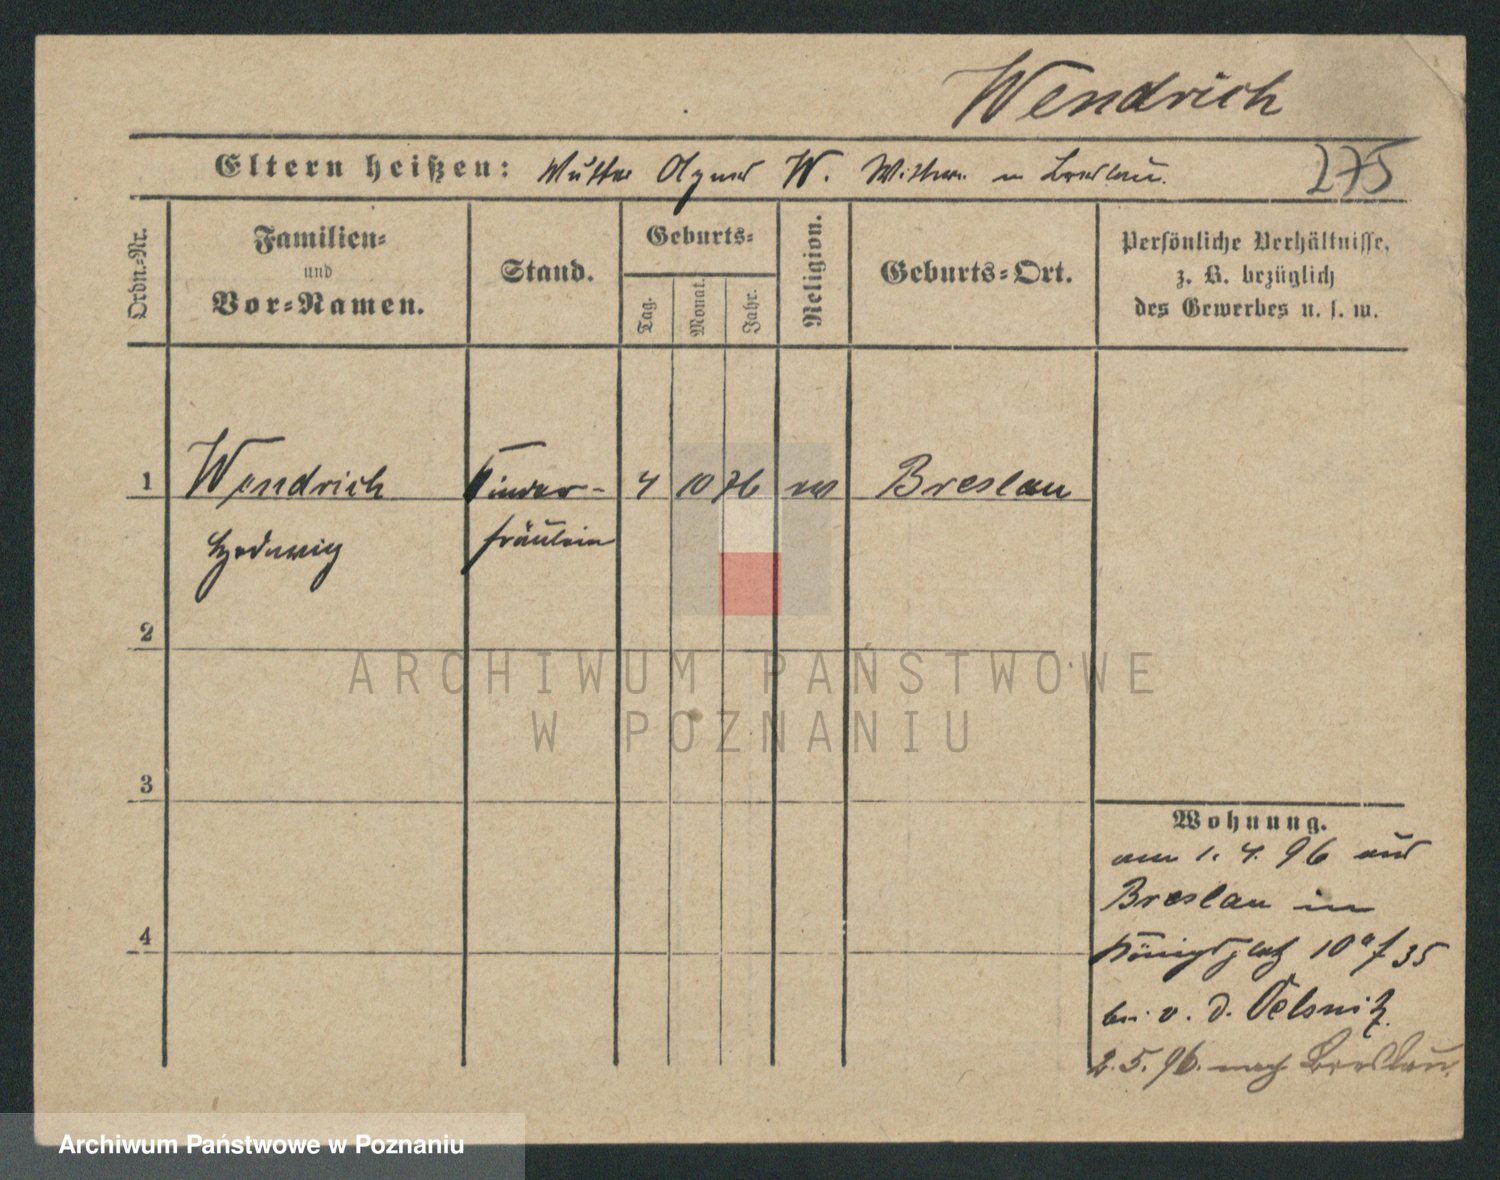 Wendrich
Eltern heißen: Mutter Agnes W. Withwe. in Breslau.
275
Ordn.-Nr.
Familien-
und
Vor-Namen.
Stand.
Geburts-
Tag.
Monat.
Jahr.
Religion.
Geburts-Ort.
Persönliche Verhältnisse,
z. B. bezüglich
des Gewerbes u. s. w.
1 Wendrich Kinder- 4 10 76 ev Breslau
Hedwig fräulein
2
3
4
ARCHIWUM PAŃSTWOWE
W POZNANIU
Wohnung.
am 1. 4. 96 aus
Breslau in
Königsplatz 10a 35
bei v. d. Oelsnitz
2.5.96. nach Breslau.
Archiwum Państwowe w Poznaniu